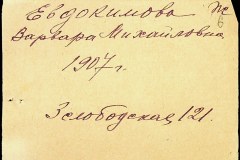 Евдокимова Ж
Варвара Михайловна
1907 г.
Зслободская 121.